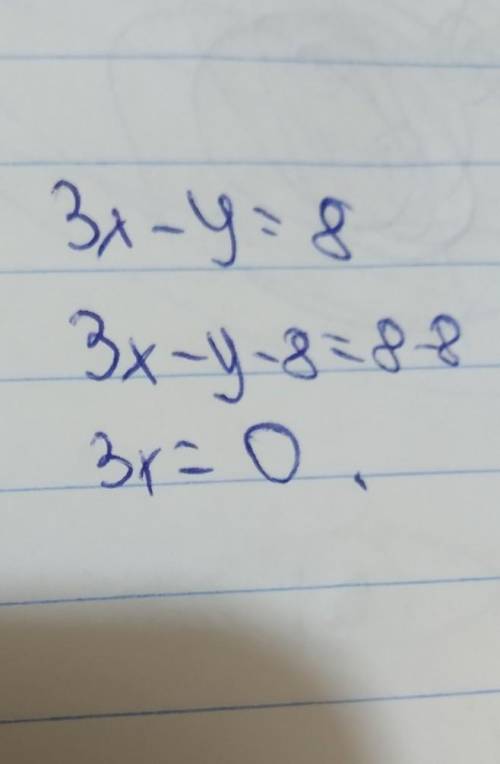 3x - y = 8
3x - y - 8 = 8-8
3x = 0 .